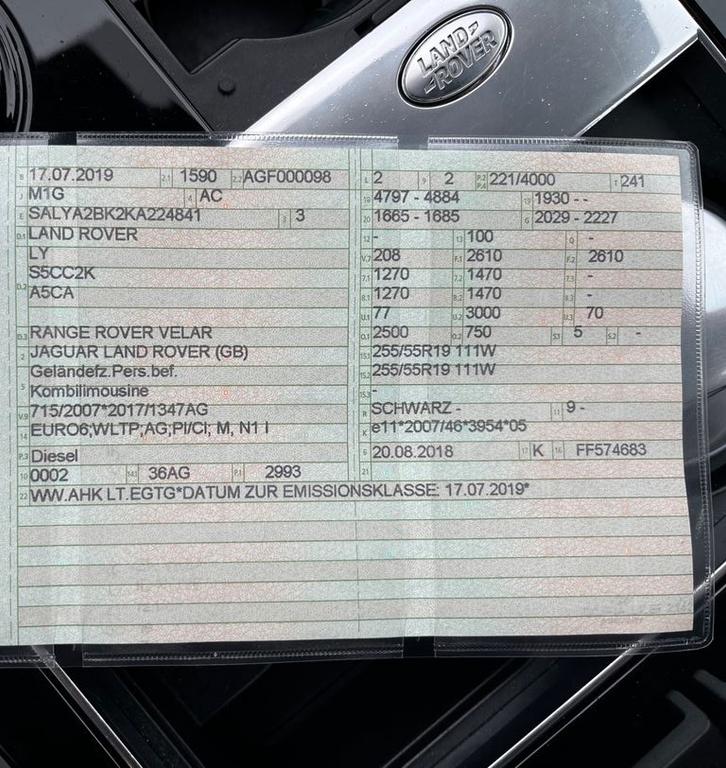 LAND ROVER
B 17.07.2019 2.1 1590 2.2 AGF000098
J M1G 4 AC
E SALYA2BK2KA224841 3 3
D.1 LAND ROVER
LY
D.2 S5CC2K
A5CA
D.3 RANGE ROVER VELAR
2 JAGUAR LAND ROVER (GB)
5 Geländefz.Pers.bef.
Kombilimousine
V.9 715/2007*2017/1347AG
14 EURO6;WLTP;AG;PI/CI; M, N1 I
P.3 Diesel
10 0002 14.1 36AG P.1 2993
22 WW.AHK LT.EGTG*DATUM ZUR EMISSIONSKLASSE: 17.07.2019*
L 2 9 2 P.2 P.4 221/4000 T 241
18 4797 - 4884 19 1930 - -
20 1665 - 1685 G 2029 - 2227
12 - 13 100 Q -
V.7 208 F.1 2610 F.2 2610
7.1 1270 7.2 1470 7.3 -
8.1 1270 8.2 1470 8.3 -
U.1 77 U.2 3000 U.3 70
O.1 2500 O.2 750 S.1 5 S.2 -
15.1 255/55R19 111W
15.2 255/55R19 111W
15.3 -
R SCHWARZ - 11 9 -
K e11*2007/46*3954*05
6 20.08.2018 17 K 16 FF574683
21